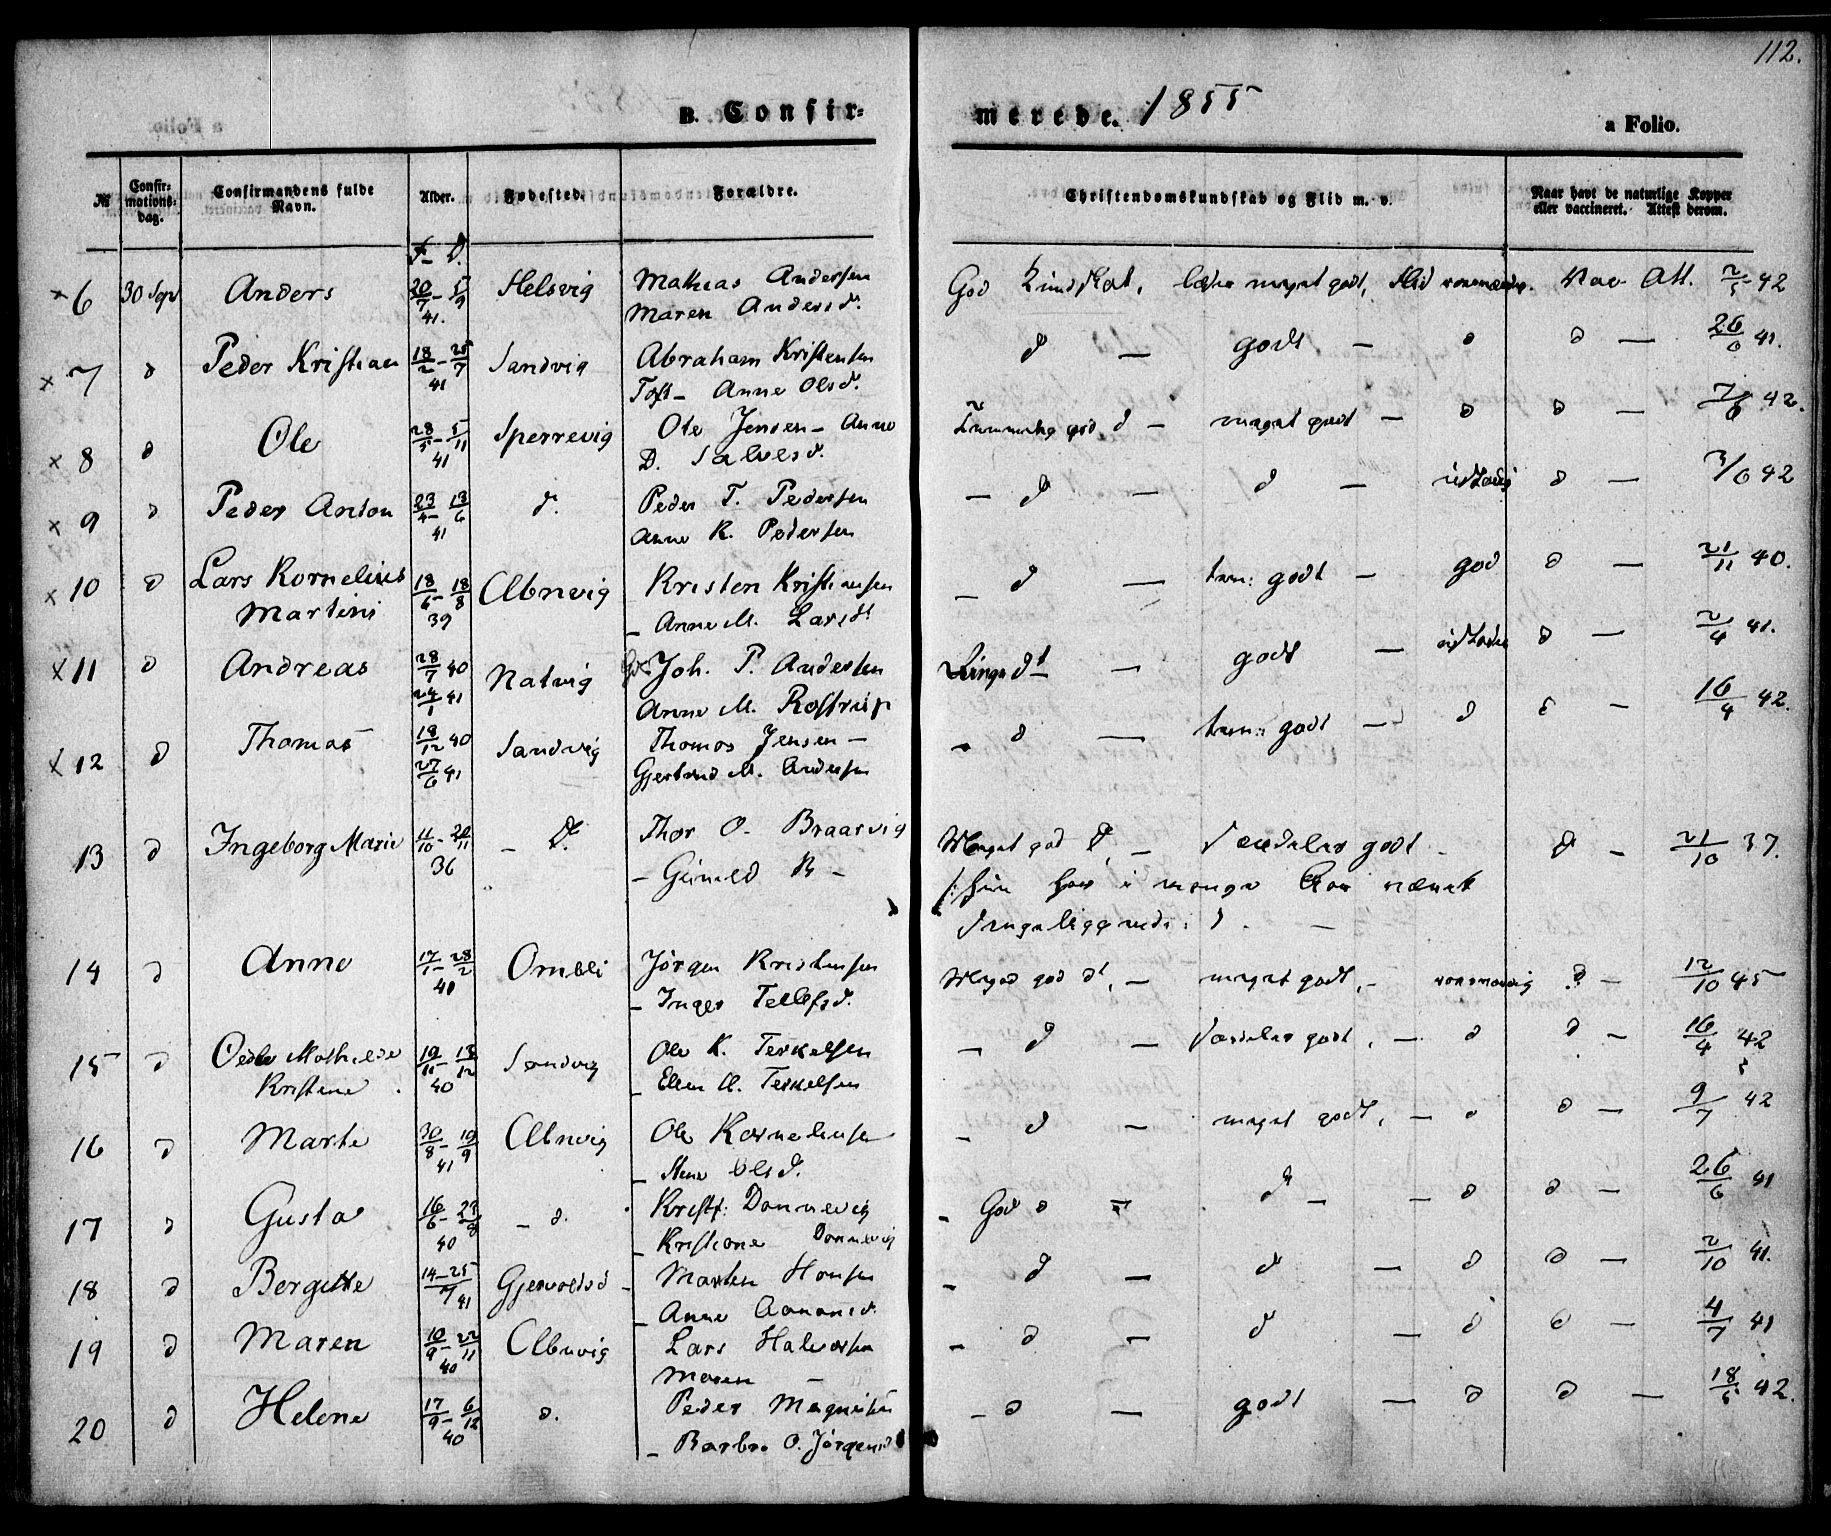 112.
B. Confir= merede. 1855
a Folio.
№ Confir=mations=dag. Confirmandens fulde Navn. Alder. Fødested. Forældre. Christendomskundskab og Flid m. v. Naar havt de naturlige Kopper eller vaccineret. Attest derom.
F– D.
x 6 30 Sept Anders 20/7 – 5/9 41. Helsvig Mathias Andersen God Kundskab, læser meget godt, Vac. Att. 2/5 42
Maren Andersd.
x 7 d Peder Kristian 18/2 – 25/7 41 Sandvig Abraham Kristensen d — godt — d d — 26/6 41.
Toft – Anne Olsd.
x 8 d Ole 28/5 – 5/11 41 Sperrevig Ole Jensen – Anne god d – meget godt — d d — 7/6 42.
D. Salvesd.
x 9 d Peder Anton 23/4 – 13/6 41 d. Peder T. Pedersen – d — d — d — 3/6 42
Anne K. Pedersen
x 10 d Lars Kornelius Martini 18/6 – 18/8 39 Albuvig Kristen Kristiansen – d — tem: godt — god d — 21/11 40.
– Anne M. Larsd
x 11 d Andreas 28/7 40 24/1 41 Natvig Joh. P. Andersen Ringe dt — godt — d — 2/4 41.
Anne M. Rostrup
x 12 d Thomas 18/12 40 27/6 41 Sandvig Thomas Jensen – – d — tem: godt — d d — 16/4 42.
Gjertrud M. Andersen
13 d Ingeborg Marie 11/10 – 20/11 36 – d. Thor O. Braarvig Meget god d, – Særdeles godt – d – 21/10 37.
– Gunild K – /: hun har i mange Aar været
sengeliggende :/
14 d Anne 17/1 – 28/2 41 Omdli Jørgen Kristensen Meget god dt, – meget godt, – d – 12/10 45
– Inger Tellefsd.
15 d Mathilde Kristine 19/11 – 18/12 40 Sandvig Ole K. Terkelsen – d — Særdeles godt, – d d – 16/4 42
– Ellen A. Terkelsen
16 d Marte 30/8 – 19/9 41 Albuvig Ole Korneliusen – d — meget godt, – d d — 9/7 42
– Olsd.
17 d Gusta 16/6 – 23/8 40 – d. Kristf: Dannevig – God d – d – – d d – 26/6 41
– Kristiane Dannevig
18 d Bergitte 14 – 25/7 41 Gjervoldsd – Morten Hansen – d — d — d d — 2/10 41.
– Anne Aanonsd.
19 d Maren 10/9 – 22/11 40 Albuvig Lars Halvorsen – d — d — d d — 4/7 41
Maren –
20 d Helene 17/9 – 6/12 40 d. Peder Magnusen – d — godt — d d — 18/5 42.
– Barbro O. Jørgensd